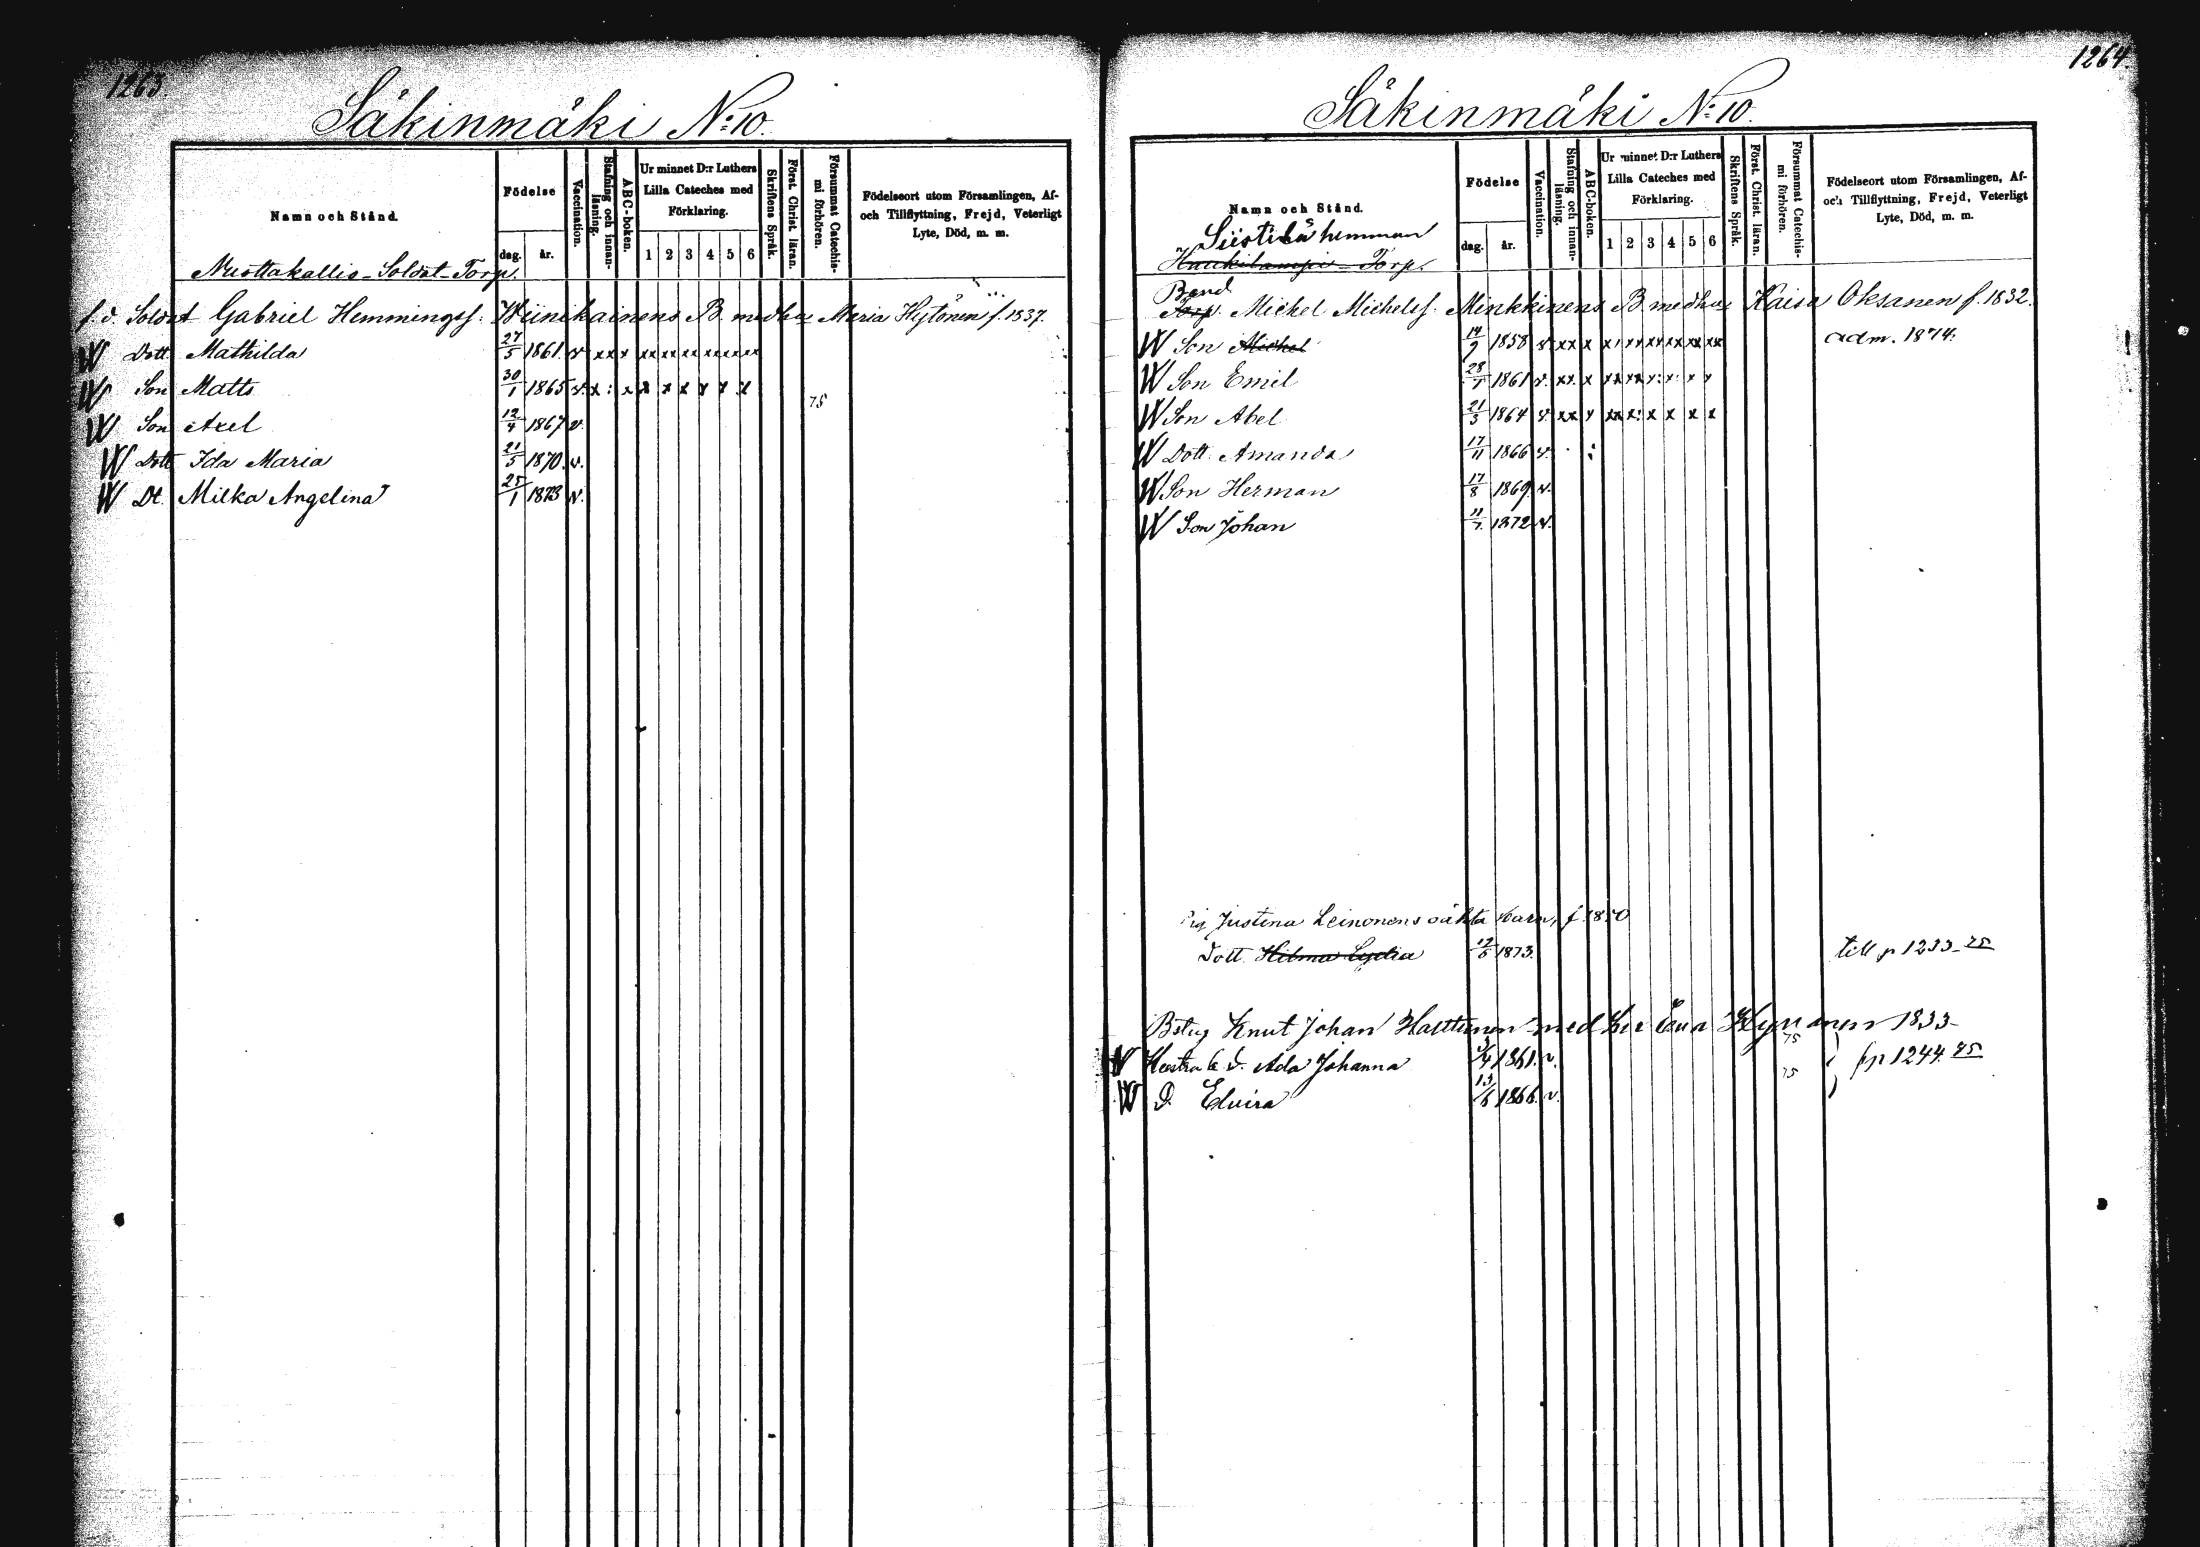 1263.
Säkinmäki No: 10.
Namn och Stånd.
Födelse
dag. år.
Vaccination.
Stafning och innan-
läsning.
ABC-boken.
Ur minnet D:r Luthers
Lilla Cateches med
Förklaring.
1 2 3 4 5 6
Skriftens Språk.
Först. Christ. läran.
Försummat Catechis-
mi förhören.
Födelseort utom Församlingen, Af-
och Tillflyttning, Frejd, Veterligt
Lyte, Död, m. m.
Mustakallio Soldat Torp.
f. d. Soldat Gabriel Hemmingss. Wiinikainens B. med hu Maria Hytönen f. 1837.
W Dott Mathilda 27/5 1861. v x x x xx xx xx xx xx xx
W Son Matts 30/1 1865 v. x : x x x x x x x 75
W Son Axel 12/4 1867 v.
W Dott Ida Maria 21/5 1870. v.
W Dt. Milka Angelina 25/1 1873 v.
1264.
Säkinmäki No: 10.
Namn och Stånd.
Födelse
dag. år.
Vaccination.
Stafning och innan-
läsning.
ABC-boken.
Ur minnet D:r Luthers
Lilla Cateches med
Förklaring.
1 2 3 4 5 6
Skriftens Språk.
Först. Christ. läran.
Försummat Catechis-
mi förhören.
Födelseort utom Församlingen, Af-
och Tillflyttning, Frejd, Veterligt
Lyte, Död, m. m.
Siistiläs hemman
Haukilampi Torp.
Bond
Torp. Michel Michelss. Minkkinens B. med hu Kaisa Oksanen f. 1832.
W Son Michel 1858 v. xx x adm. 1874.
W Son Emil 1861 v. xx. x
W Son Abel 21/3 1864 v. xx x
W Dott. Amanda 17/11 1866 v.
W Son Herman 17/8 1869. v.
W Son Johan 11/7. 1872 v.
Pig Justina Leinonens oäkta barn, f 1850
Dott. Hilma Lydia 1873. till p 1233 75
Bstug Knut Johan Halttunen med hu Eva Kyrönen 1833
W D. Ada Johanna 1861. v. 75 fp 1244. 75
W D. Elvira 13/6 1866. v. 75